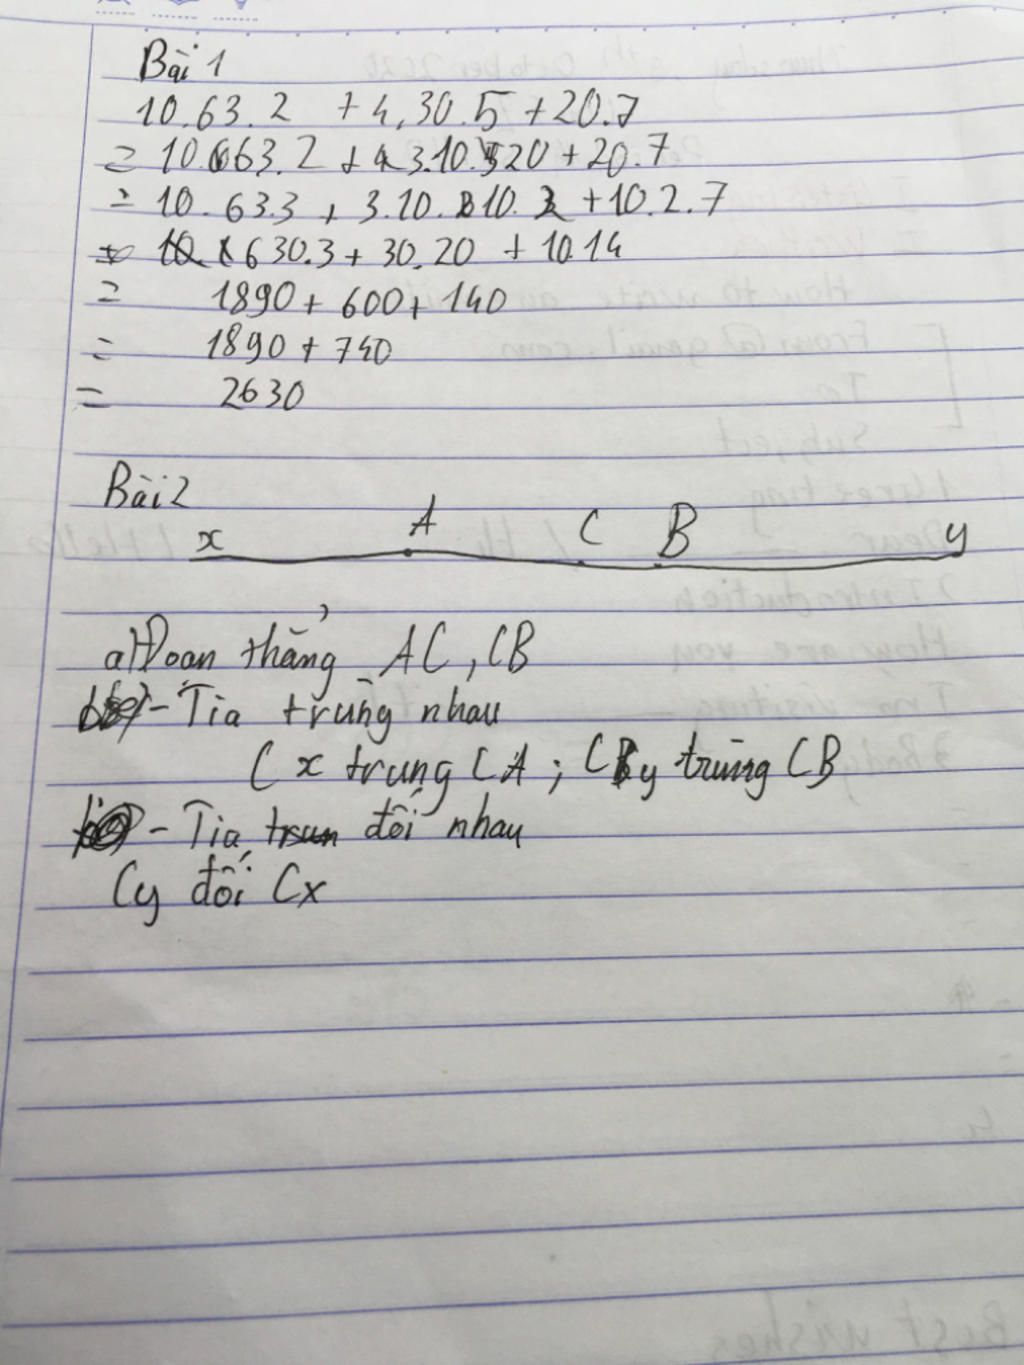 Bài 1
10.63.2 + 4.30.5 + 20.7
= 10.63.2 + 3.10.20 + 20.7
= 10.63.3 + 3.10.10.2 + 10.2.7
= 630.3 + 30.20 + 10.14
= 1890 + 600 + 140
= 1890 + 740
= 2630
Bài 2
x A C B y
a) Đoạn thẳng AC, CB
- Tia trùng nhau
Cx trung CA; Cy trùng CB
- Tia đối nhau
Cy đối Cx